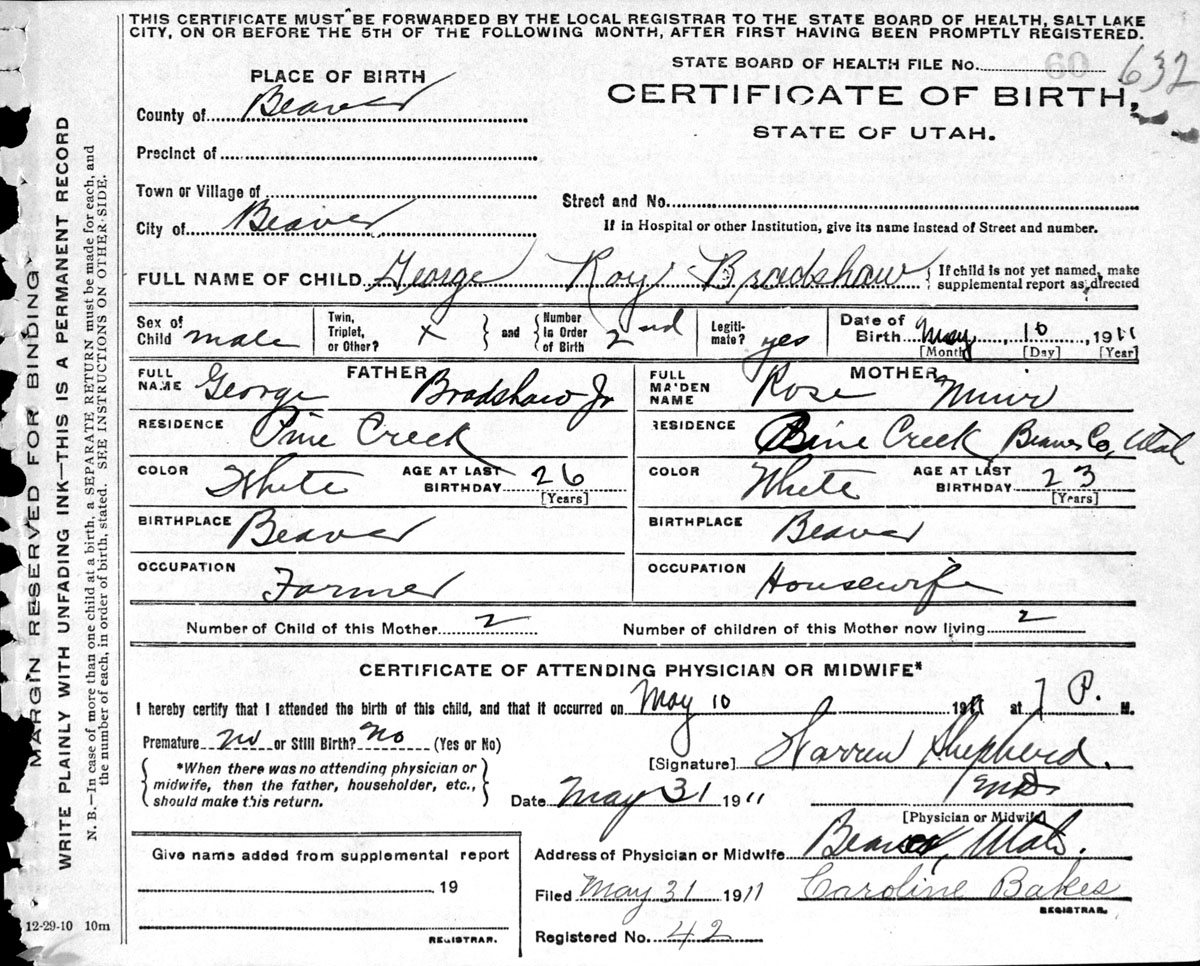 THIS CERTIFICATE MUST BE FORWARDED BY THE LOCAL REGISTRAR TO THE STATE BOARD OF HEALTH, SALT LAKE
CITY, ON OR BEFORE THE 5TH OF THE FOLLOWING MONTH, AFTER FIRST HAVING BEEN PROMPTLY REGISTERED.
STATE BOARD OF HEALTH FILE No. 60 632
PLACE OF BIRTH
CERTIFICATE OF BIRTH,
STATE OF UTAH.
County of Beaver
Precinct of
Town or Village of
Street and No.
City of Beaver
If in Hospital or other Institution, give its name instead of Street and number.
FULL NAME OF CHILD George Roy Bradshaw { If child is not yet named, make supplemental report as directed
Sex of Child male Twin, Triplet, or Other? X } and { Number in Order of Birth 2nd Legitimate? yes Date of Birth May 10, 1911
[Month] [Day] [Year]
FATHER
FULL NAME George Bradshaw Jr
RESIDENCE Pine Creek
COLOR White AGE AT LAST BIRTHDAY 26
[Years]
BIRTHPLACE Beaver
OCCUPATION Farmer
MOTHER
FULL MAIDEN NAME Rose Muir
RESIDENCE Pine Creek Beaver Co, Utah
COLOR White AGE AT LAST BIRTHDAY 23
[Years]
BIRTHPLACE Beaver
OCCUPATION Housewife
Number of Child of this Mother 2 Number of children of this Mother now living 2
CERTIFICATE OF ATTENDING PHYSICIAN OR MIDWIFE*
I hereby certify that I attended the birth of this child, and that it occurred on May 10 1911 at 7 P. M.
Premature no or Still Birth? No (Yes or No)
[Signature] Warren Shepherd.
*When there was no attending physician or
midwife, then the father, householder, etc.,
should make this return.
Date May 31 1911 MD
[Physician or Midwife]
Give name added from supplemental report
19
REGISTRAR.
Address of Physician or Midwife Beaver, Utah.
Filed May 31 1911 Caroline Bakes
REGISTRAR.
Registered No. 42
MARGIN RESERVED FOR BINDING
WRITE PLAINLY WITH UNFADING INK—THIS IS A PERMANENT RECORD
N. B.—In case of more than one child at a birth, a SEPARATE RETURN must be made for each, and
the number of each, in order of birth, stated. SEE INSTRUCTIONS ON OTHER SIDE.
12-29-10 10m